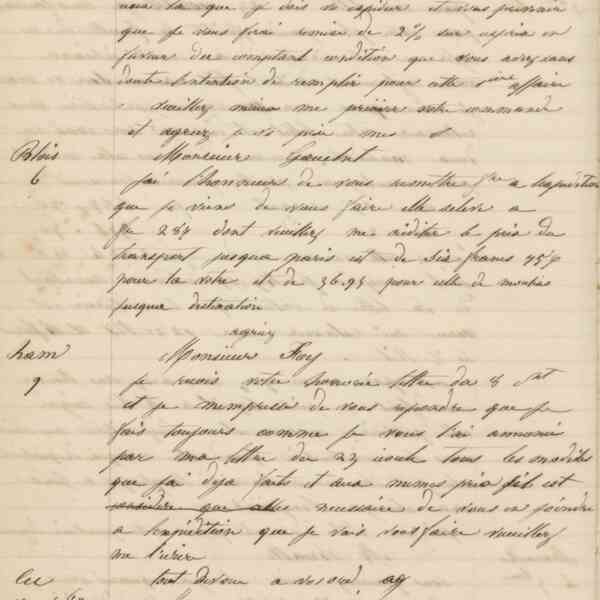 que je dois vous expedier et vous prevenir
que je vous ferai remise de 2% sur
faveur du comptant condition que vous avez sans
doute l'intention de remplir pour cette affaire
veuillez mieux me votre commande
et agreez je vous prie mes
Blois Monsieur Gauchet
6 J'ai l'honneur de vous remettre fre a l'expedition
que je viens de vous faire elle seleve a
fr 287 dont veuillez me crediter le prix du
transport jusqua paris est de six francs 75
pour la votre et de 36.95 pour celle de
jusque destination
agreez
ham Monsieur Foy
9 Je recois votre honorée lettre du 8 Ct
et je mempresse de vous repondre que je
fais toujours comme je vous l'ai annoncé
par ma lettre du 23 aout tous les modeles
que j'ai deja faits et aux memes prix est
que necessaire de vous en joindre
a lexpedition que je vais vous faire veuillez
me l'ecrire
tout devoué a vos ord. ag